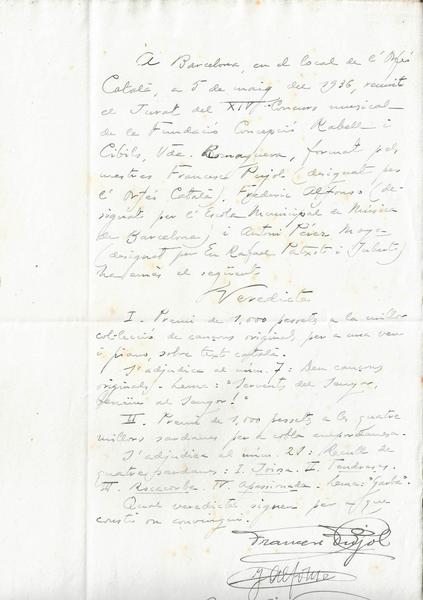 A Barcelona, en el local de l'Orfeó
Català, a 5 de maig del 1936, reunit
el Jurat del XIV Concurs musical
de la Fundació Concepció Rabell i
Cibils, Vda. Romaguera, format pels
mestres Francesc Pujol (designat per
l'Orfeó Català), Frederic Alfonso (de-
signat per l'Escola Municipal de Música
de Barcelona) i Antoni Pérez Moya
(designat per En Rafael Patxot i Jubert)
ha emès el següent
Veredicte
I. Premi de 1,000 pessetes a la millor
col·lecció de cançons originals per a una veu
i piano, sobre text català.
S'adjudica al núm. 7: Deu cançons
originals. Lema: "Servents del Senyor,
beneïm al Senyor!"
II. Premi de 1,000 pessetes a les quatre
millors sardanes per a cobla empordanesa.
S'adjudica al núm. 21: Recull de
quatre sardanes: I. Joiosa. II. Tendresa.
III. Rocacorba. IV. Apassionada. Lema: "Garbí".
Qual veredicte signen per que
consti on convingui.
Francesc Pujol
F Alfonso